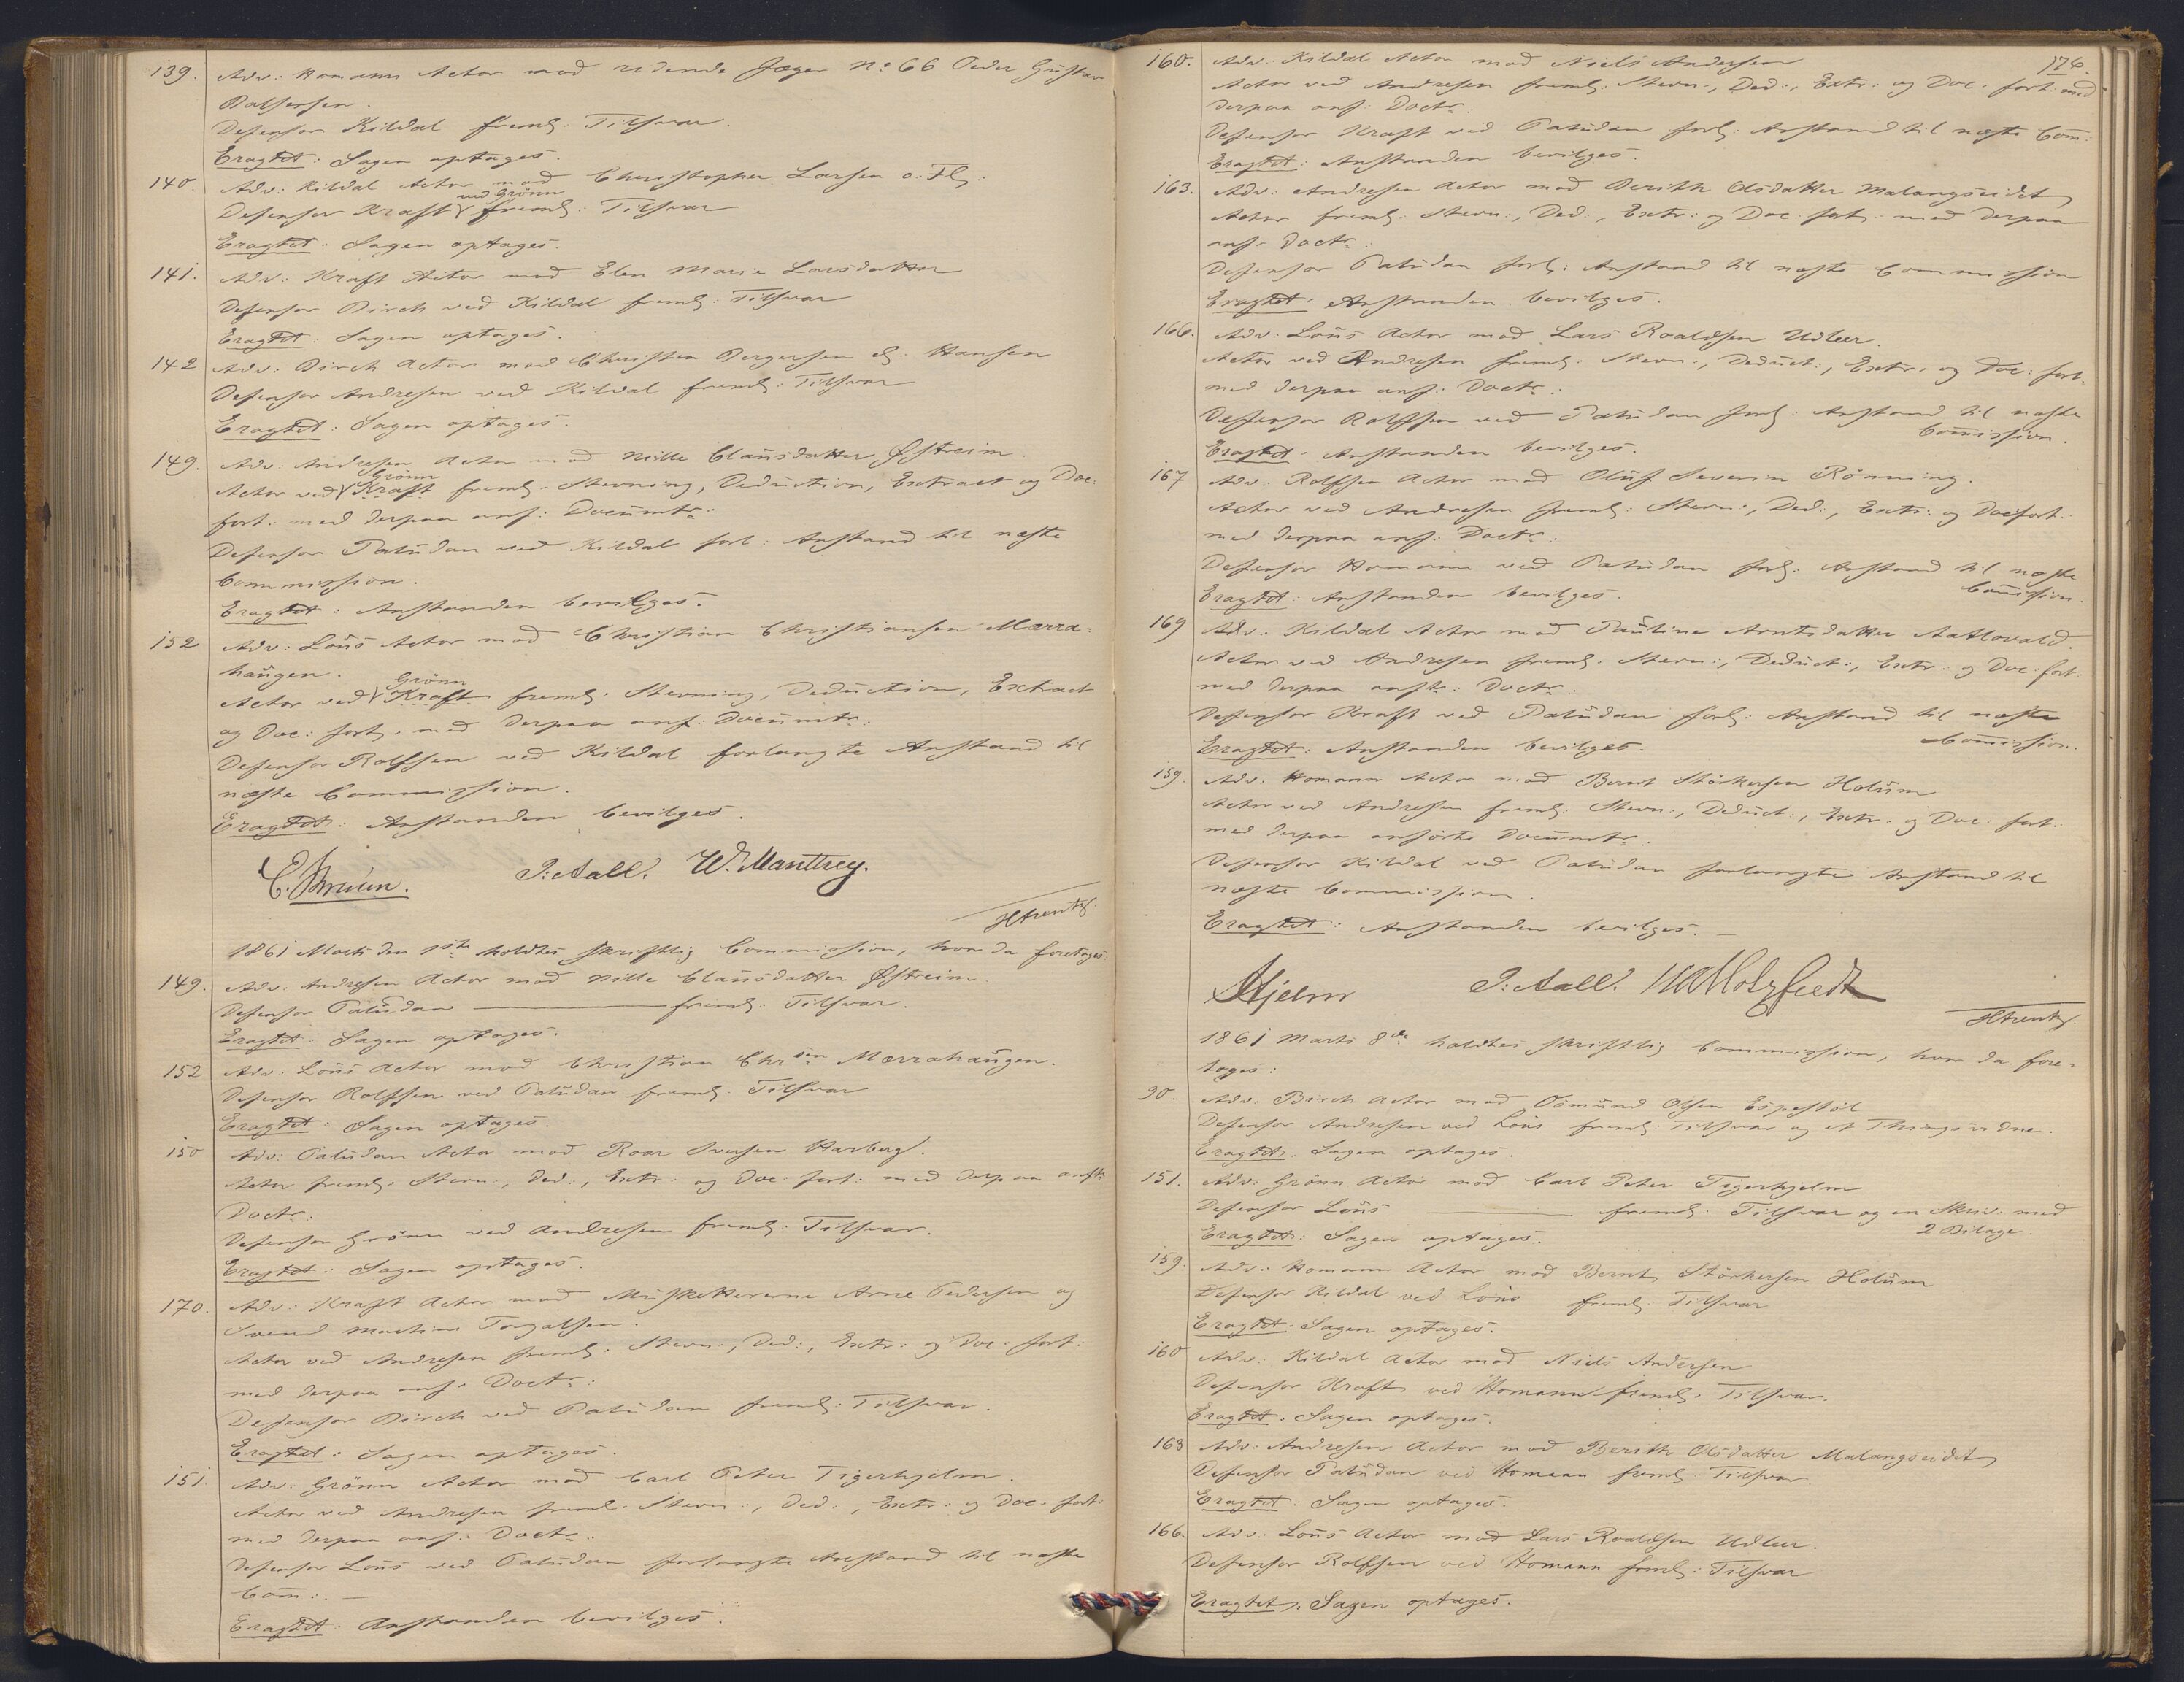 139. Adv: Homann Actor mod ridende Jæger No 66 Peder Gustav
Balsersen.
Defensor Kildal freml: Tilsvar.
Eragtet: Sagen optages.
140. Adv: Kildal Actor mod Christopher Larsen o. Fl:
ved Grönn
Defensor Kraft freml: Tilsvar
Eragtet: Sagen optages.
141. Adv: Kraft Actor mod Elen Marie Larsdatter
Defensor Birch ved Kildal freml: Tilsvar
Eragtet: Sagen optages.
142. Adv: Birch Actor mod Christen Bergersen el. Hansen
Defensor Andresen ved Kildal freml: Tilsvar
Eragtet: Sagen optages.
149. Adv: Andresen Actor mod Nille Clausdatter Östreim.
Grönn
Actor ved Kraft freml: Stevning, Deduction, Extract og Doc:
fort: med derpaa anf: Documtr:
Defensor Paludan ved Kildal forl: Anstand til næste
Commission.
Eragtet: Anstanden bevilges.
152 Adv: Lous Actor mod Christian Christiansen Mærra-
haugen.
Grönn
Actor ved Kraft freml: Stevning, Deduction, Extract
og Doc: fort: med derpaa anf: Documtr:
Defensor Rolfsen ved Kildal forlangte Anstand til
næste Commission.
Eragtet: Anstanden bevilges.
P. Aall.
1861 Marts den 1ste holdtes skriftlig Commission, hvor da foretoges:
149. Adv: Andresen Actor mod Nille Clausdatter Östreim
Defensor Paludan — freml: Tilsvar.
Eragtet: Sagen optages.
152 Adv: Lous Actor mod Christian Chrsen Mærrahaugen.
Defensor Rolfsen ved Paludan freml: Tilsvar
Eragtet: Sagen optages.
150 Adv: Paludan Actor mod Roar Iversen Harberg.
Actor freml: Stevn:, Ded:, Extr: og Doc: fort: med derpaa anfte
Doctr:
Defensor Grönn ved Andresen freml: Tilsvar.
Eragtet: Sagen optages.
170. Adv: Kraft Actor mod Muskettererne Arne Pedersen og
Svend Torgalsen.
Actor ved Andresen freml: Stevn:, Ded:, Extr: og Doc: fort:
med derpaa anf: Doctr:
Defensor Birch ved Paludan freml: Tilsvar.
Eragtet: Sagen optages.
151 Adv: Grönn Actor mod Carl Peter Tigerhjelm.
Actor ved Andresen freml: Stevn:, Ded:, Extr: og Doc: fort:
med derpaa anf: Doctr:
Defensor Lous ved Paludan forlangte Anstand til næste
Com:
Eragtet: Anstanden bevilges.
174.
160. Adv: Kildal Actor mod Niels Andersen
Actor ved Andresen freml: Stevn:, Ded:, Extr: og Doc: fort: med
derpaa anf: Doctr:
Defensor Kraft ved Paludan forl: Anstand til næste Com:
Eragtet: Anstanden bevilges.
163. Adv: Andresen Actor mod Berith Olsdatter Malangseidet
Actor freml: Stevn:, Ded:, Extr: og Doc: fort: med derpaa
anf: Doctr:
Defensor Paludan forl: Anstand til næste Commission
Eragtet: Anstanden bevilges.
166. Adv: Lous Actor mod Lars Roaldsen Udleer.
Actor ved Andresen freml: Stevn:, Deduct:, Extr: og Doc: fort:
med derpaa anf: Doctr:
Defensor Rolfsen ved Paludan forl: Anstand til næste
Commission.
Eragtet: Anstanden bevilges.
167 Adv: Rolfsen Actor mod Oluf Severin Rönning.
Actor ved Andresen freml: Stevn:, Ded:, Extr: og Doc: fort:
med derpaa anf: Doctr:
Defensor Homann ved Paludan forl: Anstand til næste
Commission.
Eragtet: Anstanden bevilges.
169 Adv: Kildal Actor mod Pauline Arntsdatter
Actor ved Andresen freml: Stevn:, Deduct:, Extr: og Doc: fort:
med derpaa anfte: Doctr:
Defensor Kraft ved Paludan forl: Anstand til næste
Commission.
Eragtet: Anstanden bevilges.
159. Adv: Homann Actor mod Bernt Störkersen Holum
Actor ved Andresen freml: Stevn:, Deduct:, Extr: og Doc: fort:
med derpaa anførte Documtr:
Defensor Kildal ved Paludan forlangte Anstand til
næste Commission.
Eragtet: Anstanden bevilges.
Hjelm P. Aall.
1861 Marts 8de holdtes skriftlig Commission, hvor da fore-
toges:
90. Adv: Birch Actor mod Osmund Olsen Espestöl
Defensor Andresen ved Lous freml: Tilsvar og et Thingsvidne.
Eragtet: Sagen optages.
151. Adv: Grönn Actor mod Carl Peter Tigerhjelm
Defensor Lous — freml: Tilsvar og en Skriv: med
2 Bilage.
Eragtet: Sagen optages.
159. Adv: Homann Actor mod Bernt Störkersen Holum
Defensor Kildal ved Lous freml: Tilsvar
Eragtet: Sagen optages.
160 Adv: Kildal Actor mod Niels Andersen
Defensor Kraft ved Homann freml: Tilsvar.
Eragtet: Sagen optages.
163 Adv: Andresen Actor mod Berith Olsdatter Malangseidet
Defensor Paludan ved Homann freml: Tilsvar.
Eragtet: Sagen optages.
166. Adv: Lous Actor mod Lars Roaldsen Udleer.
Defensor Rolfsen ved Homann freml: Tilsvar
Eragtet: Sagen optages.